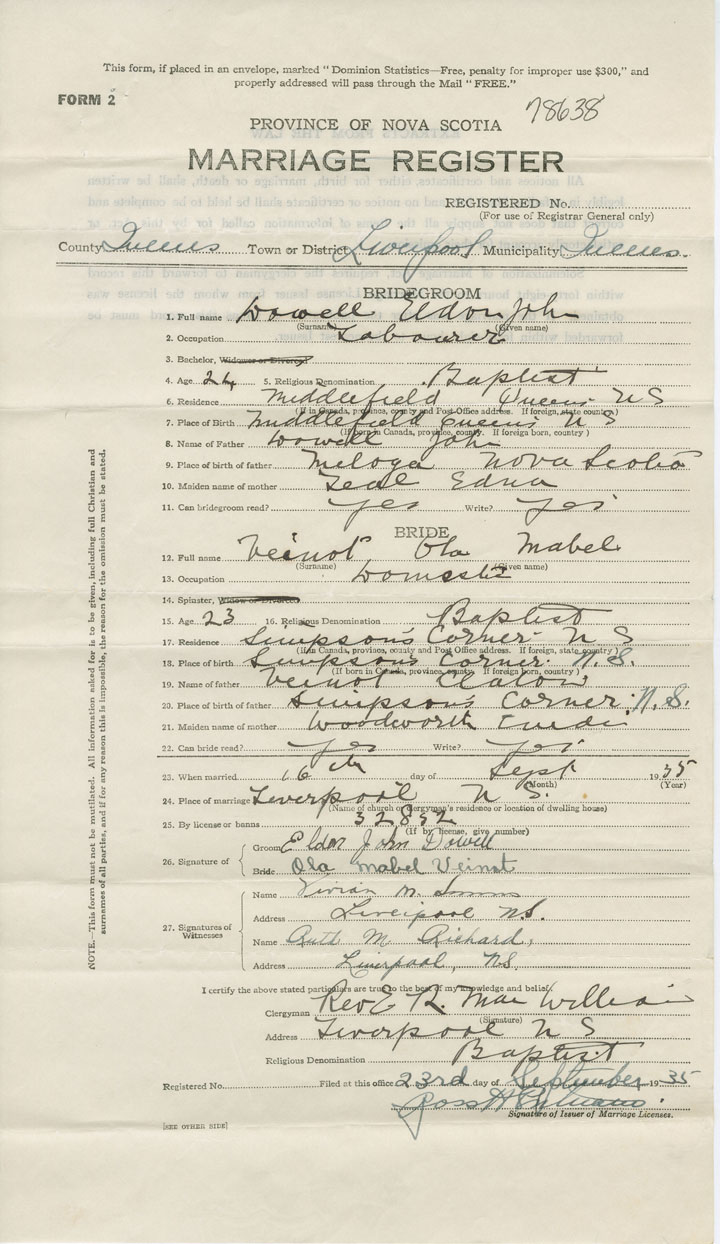 This form, if placed in an envelope, marked "Dominion Statistics—Free, penalty for improper use $300," and
properly addressed will pass through the Mail "FREE."
FORM 2
78638
PROVINCE OF NOVA SCOTIA
MARRIAGE REGISTER
REGISTERED No.
(For use of Registrar General only)
County Queens Town or District Liverpool Municipality Queens
BRIDEGROOM
1. Full name Dowell Eldon John
(Surname) (Given name)
2. Occupation Labourer
3. Bachelor, Widower or Divorced
4. Age 24 5. Religious Denomination Baptist
6. Residence Middlefield Queens N S
(If in Canada, province, county and Post Office address. If foreign, state country)
7. Place of Birth Middlefield Queens N S
(If born in Canada, province, county. If foreign born, country)
8. Name of Father Dowell John
9. Place of birth of father Nova Scotia
10. Maiden name of mother Zeal Edna
11. Can bridegroom read? yes Write? yes
BRIDE
12. Full name Veinot Ola Mabel
(Surname) (Given name)
13. Occupation Domestic
14. Spinster, Widow or Divorced
15. Age 23 16. Religious Denomination Baptist
17. Residence Simpson's Corner N S
(If in Canada, province, county and Post Office address. If foreign, state country)
18. Place of birth Simpson's Corner N.S.
(If born in Canada, province, county. If foreign born, country)
19. Name of father Veinot
20. Place of birth of father Simpson's Corner N.S.
21. Maiden name of mother Woodworth
22. Can bride read? yes Write? yes
23. When married 16th day of Sept 1935
(Month) (Year)
24. Place of marriage Liverpool N S.
(Name of church or clergyman's residence or location of dwelling house)
25. By license or banns 32892
(If by license, give number)
26. Signature of
Groom Eldon John Dowell
Bride Ola Mabel Veinot
27. Signatures of Witnesses
Name Vivian M.
Address Liverpool N.S.
Name Ruth M. Richard,
Address Liverpool, N.S.
I certify the above stated particulars are true to the best of my knowledge and belief.
Clergyman Rev E R. MacWilliam
(Signature)
Address Liverpool N S
Religious Denomination Baptist
Registered No. Filed at this office 23rd day of September 1935
Ross H
Signature of Issuer of Marriage Licenses.
[SEE OTHER SIDE]
NOTE.—This form must not be mutilated. All information asked for is to be given, including full Christian and
surnames of all parties, and if for any reason this is impossible, the reason for the omission must be stated.